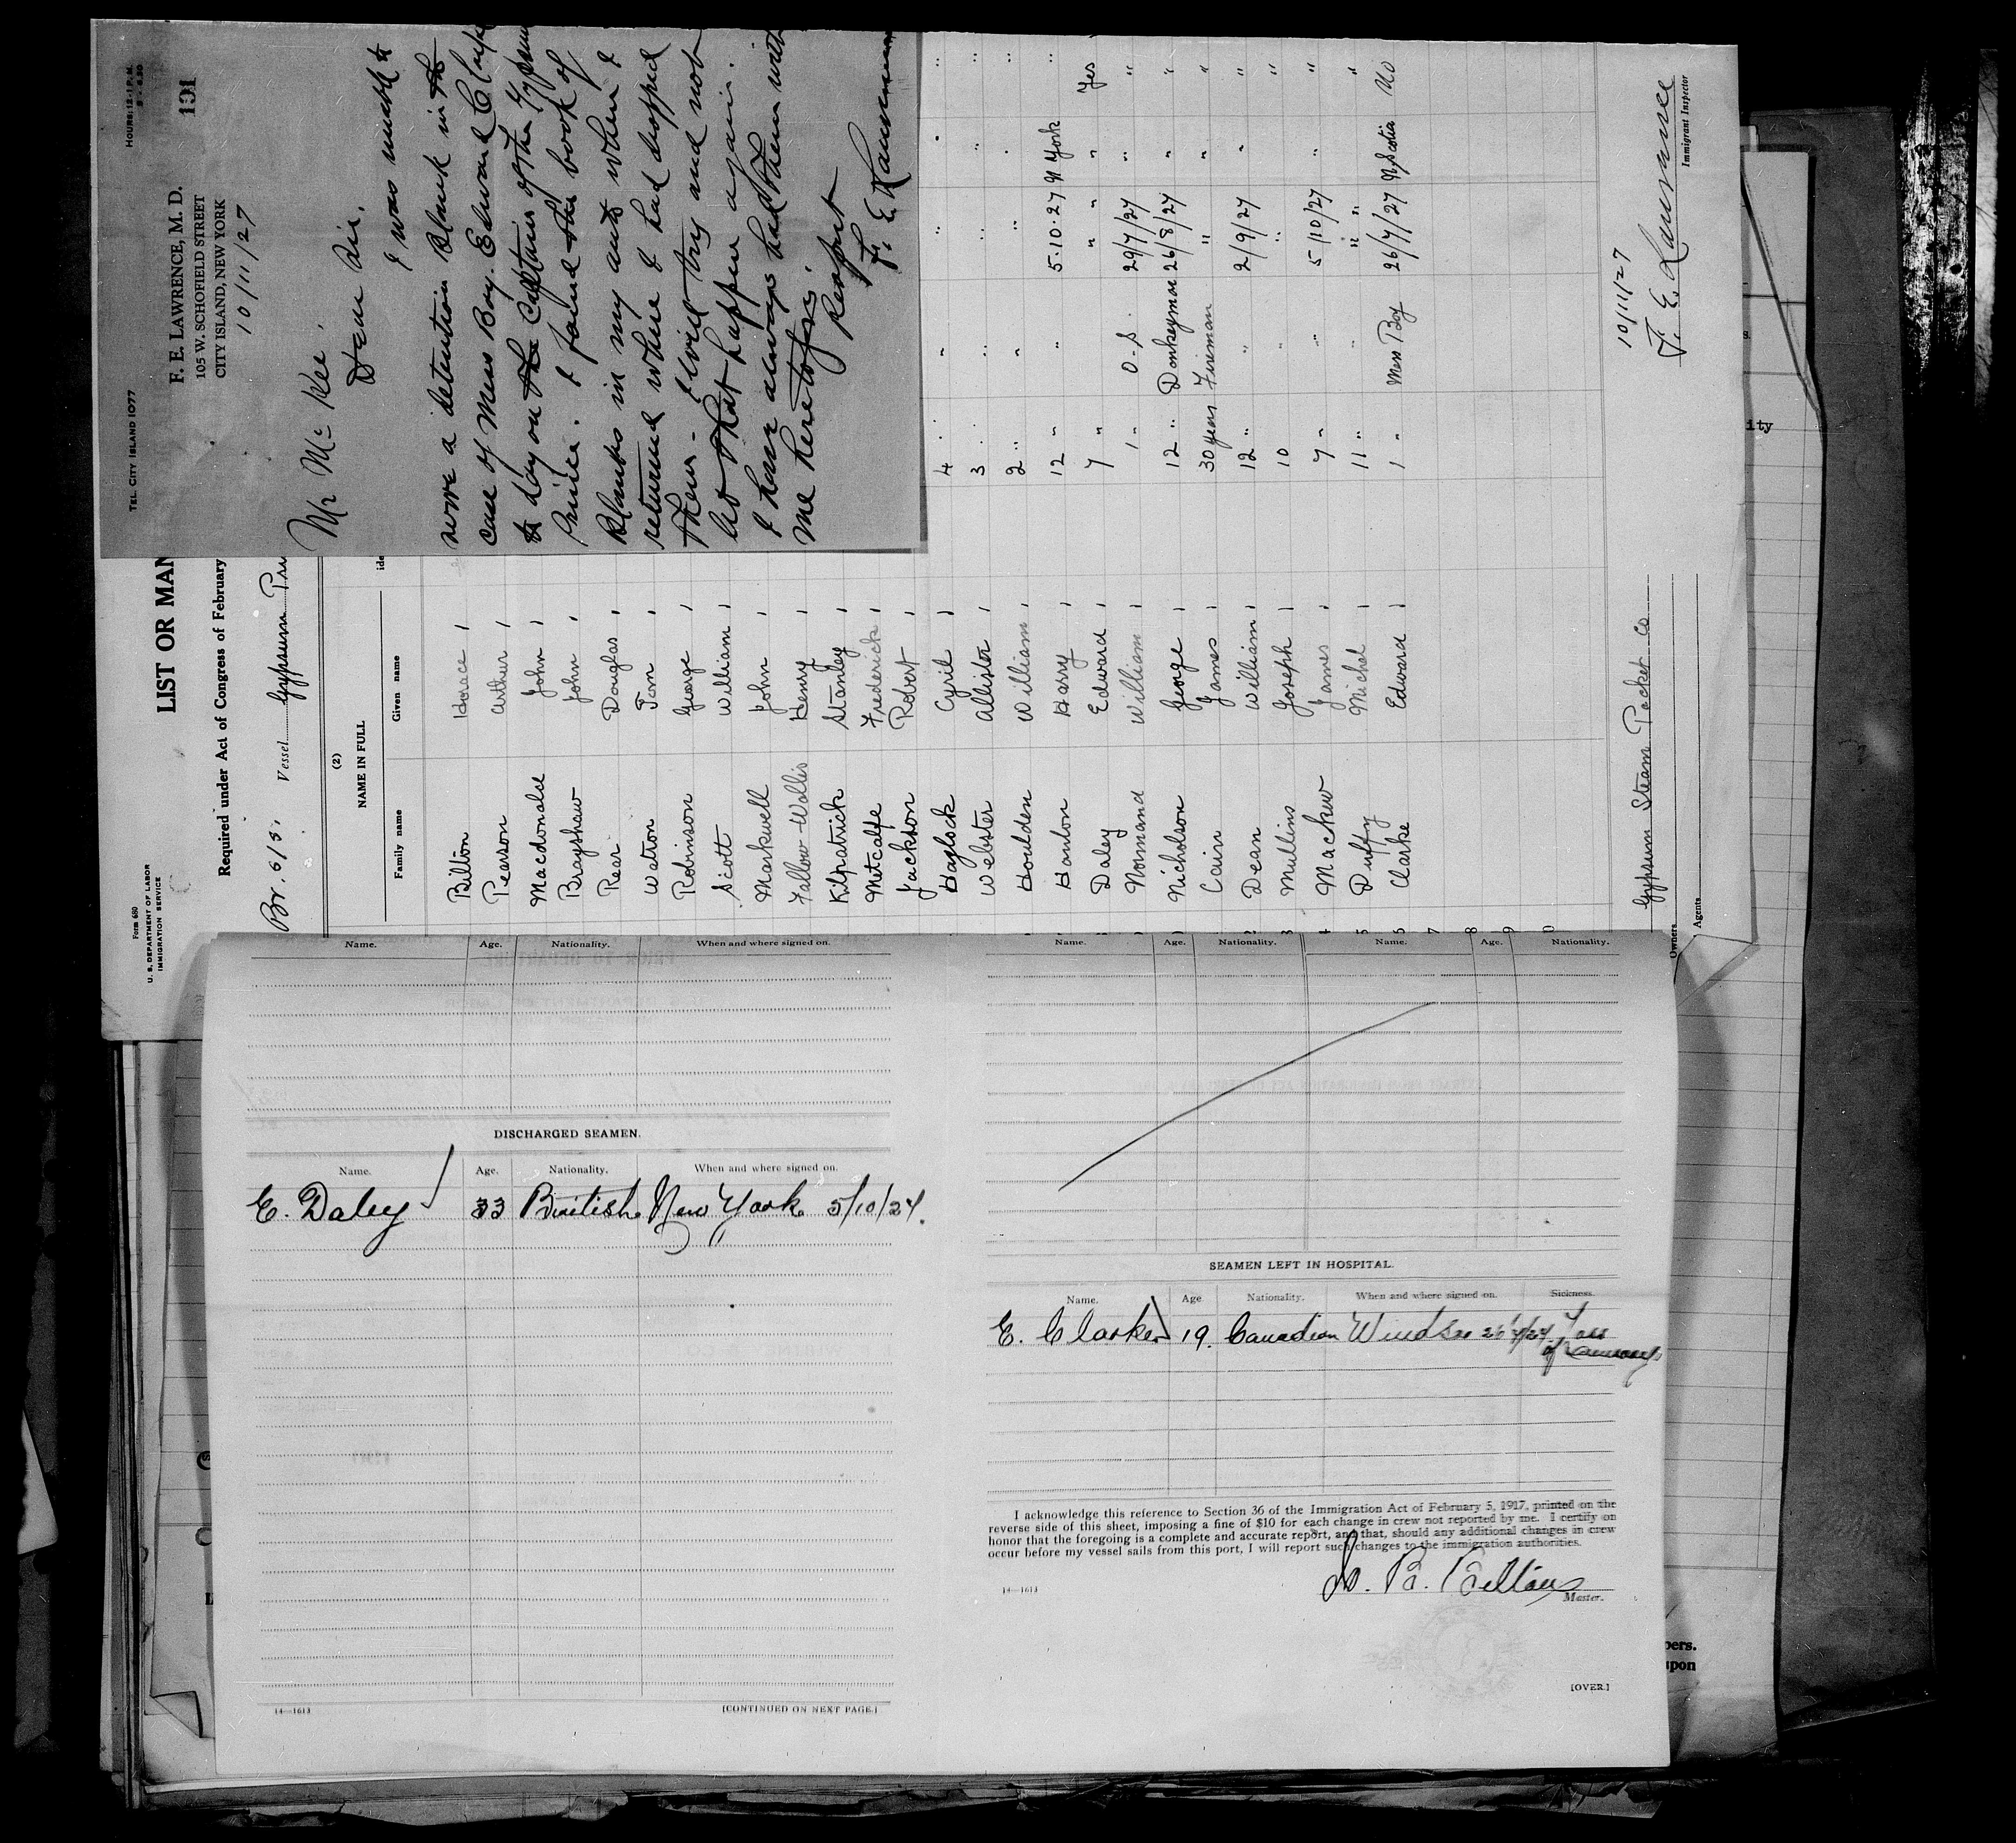 HOURS: 12-1 P.M.
TEL. CITY ISLAND 1077
F. E. LAWRENCE, M. D.
105 W. SCHOFIELD STREET
CITY ISLAND, NEW YORK
191
10/11/27
Mr Mc Kee.
Dear Sir,
I was unable to
serve a detention blank in the
case of Mess Boy. Edward Clark
to day on the Captain of the Gypsum
Prince. I found the book of
blanks in my auto when I
returned where I had dropped
them - I will try and not
let that happen again.
I have always had them with
me heretofore.
Respect
F. E. Lawrence
Form 680
U. S. DEPARTMENT OF LABOR
IMMIGRATION SERVICE
LIST OR MAN
Required under Act of Congress of February
Br. S/S. Vessel Gypsum Pri
(2)
NAME IN FULL
Family name Given name
Billton Horace
Pearson Arthur
Macdonald John
Brayshaw John
Rear Douglas
Watson Tom
Robinson George
Scott William
Markwell John
Fallow-Wallis Henry
Kilpatrick Stanley
Metcalfe Frederick
Jackson Robert
Haylock Cyril 4 " "
Webster Allister 3 " "
Houlden William 2 " "
Hanlon Harry 12 " " 5.10.27 N York "
Daley Edward 7 " " " " Yes
Normand William 1 " O.S. 29/7/27 " "
Nicholson George 12 " Donkeyman 26/8/27 " "
Cain James 30 years Fireman " " "
Dean William 12 " " 2/9/27 " "
Mullins Joseph 10 " " "
Mackew James 7 " " 5/10/27 " "
Duffy Michel 11 " " " " "
Clarke Edward 1 " Mess Boy 26/7/27 N. Scotia No
Owners Gypsum Steam Packet Co
Agents
10/11/27
F. E. Lawrence
Immigrant Inspector
ity
Name. Age. Nationality. When and where signed on.
DISCHARGED SEAMEN.
Name. Age. Nationality. When and where signed on.
E. Daley 33 British New York 5/10/27.
14—1613 [CONTINUED ON NEXT PAGE.]
Name. Age. Nationality. Name. Age. Nationality.
SEAMEN LEFT IN HOSPITAL.
Name. Age Nationality. When and where signed on. Sickness.
E. Clarke 19. Canadian Windsor 26/7/27
I acknowledge this reference to Section 36 of the Immigration Act of February 5, 1917, printed on the
reverse side of this sheet, imposing a fine of $10 for each change in crew not reported by me. I certify on
honor that the foregoing is a complete and accurate report, and that, should any additional changes in crew
occur before my vessel sails from this port, I will report such changes to the immigration authorities.
14—1613
Master.
[OVER.]
bers.
upon